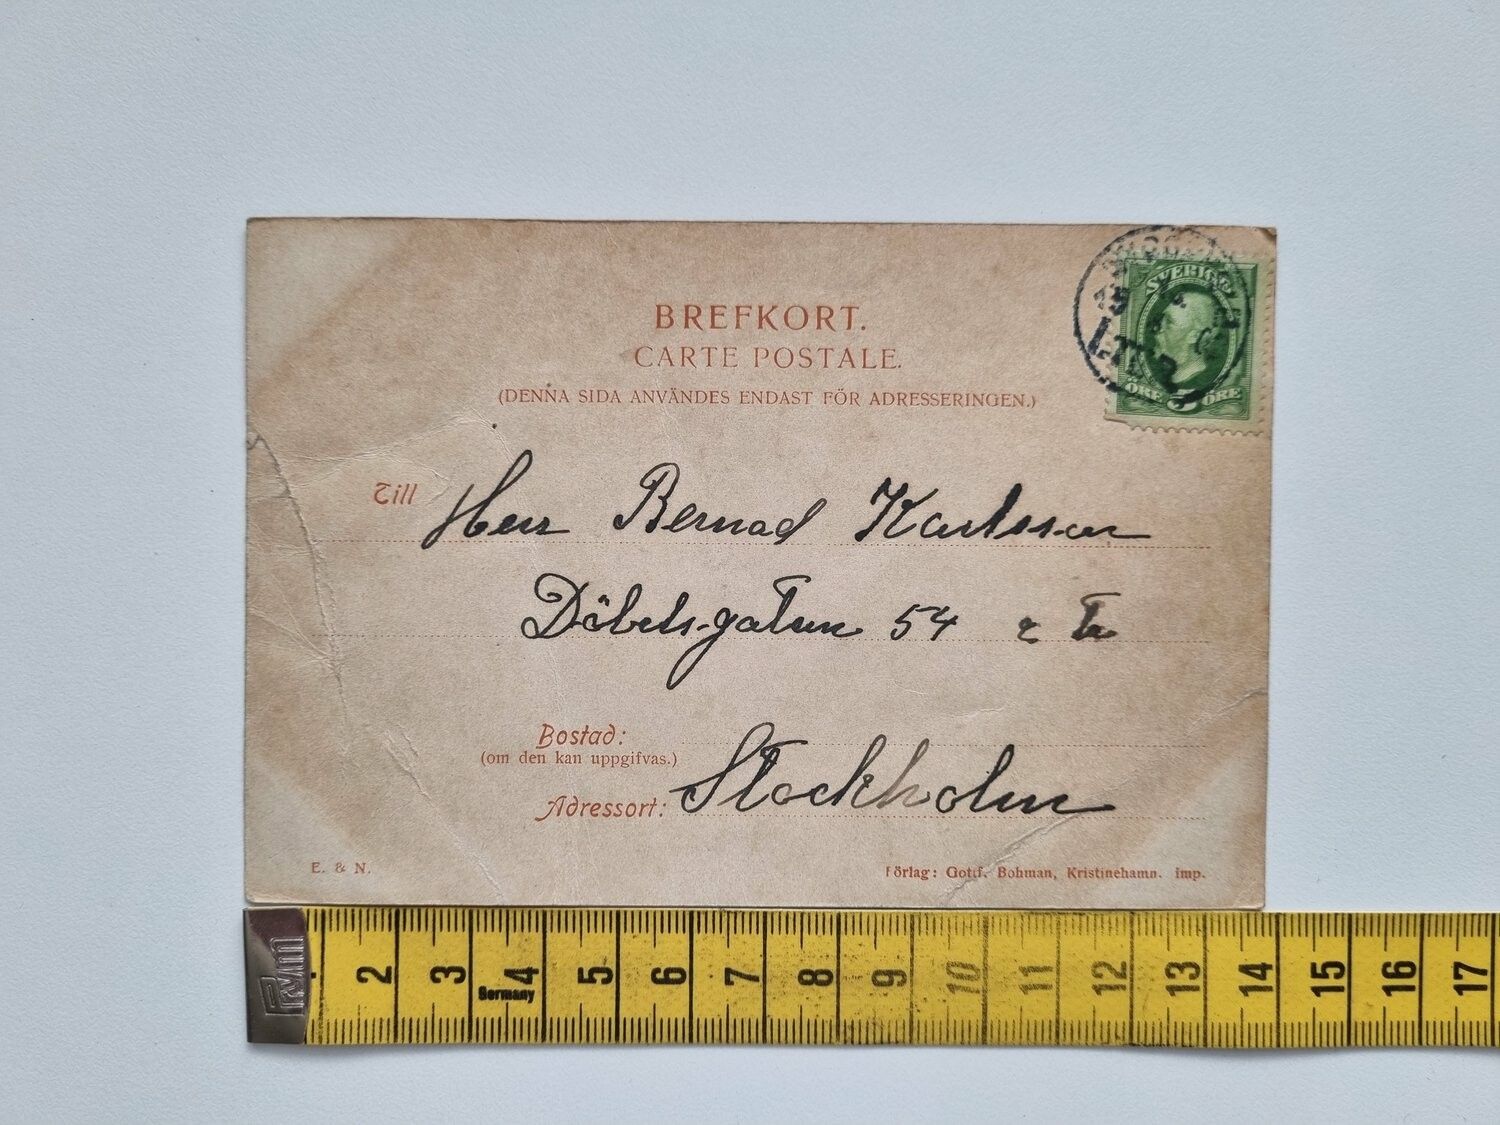 BREFKORT.
CARTE POSTALE.
(DENNA SIDA ANVÄNDES ENDAST FÖR ADRESSERINGEN.)
SVERIGE
5
ÖRE ÖRE
15
Till Herr Bernad Karlsson
Döbelsgatan 54
Bostad:
(om den kan uppgifvas.)
Adressort: Stockholm
E. & N.
Förlag: Gottf. Bohman, Kristinehamn. imp.
Prym
Germany
2 3 4 5 6 7 8 9 10 11 12 13 14 15 16 17